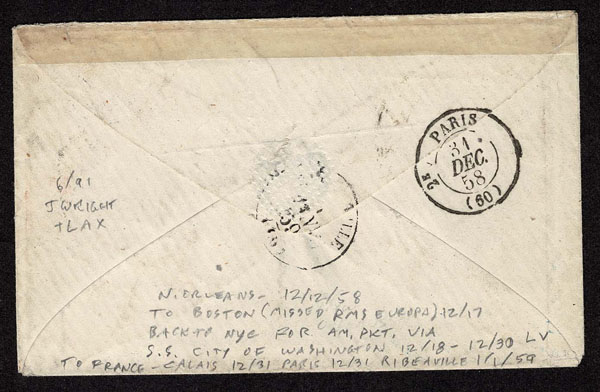 2E PARIS
31
DEC.
58
(60)
6/91
J WRIGHT
TLAX
N. ORLEANS - 12/12/58
TO BOSTON (MISSED RMS EUROPA) 12/17
BACK TO NYC FOR AM, PKT, VIA
S.S. CITY OF WASHINGTON 12/18 - 12/30 LV
TO FRANCE - CALAIS 12/31 PARIS 12/31 RIBEAVILLE 1/1/59